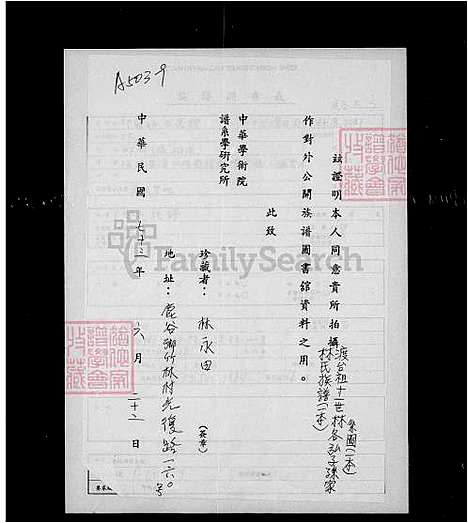 A503-9
茲證明本人同意貴所拍攝
渡台祖十一世林
林氏族譜(一本)
作對外公開族譜圖書館資料之用。
此致
中華學術院
譜系學研究所
珍藏者：林永田
(簽章)
地址：鹿谷鄉竹林村光復路一六〇號
中華民國七十二年六月二十六日
FamilySearch
譜學會